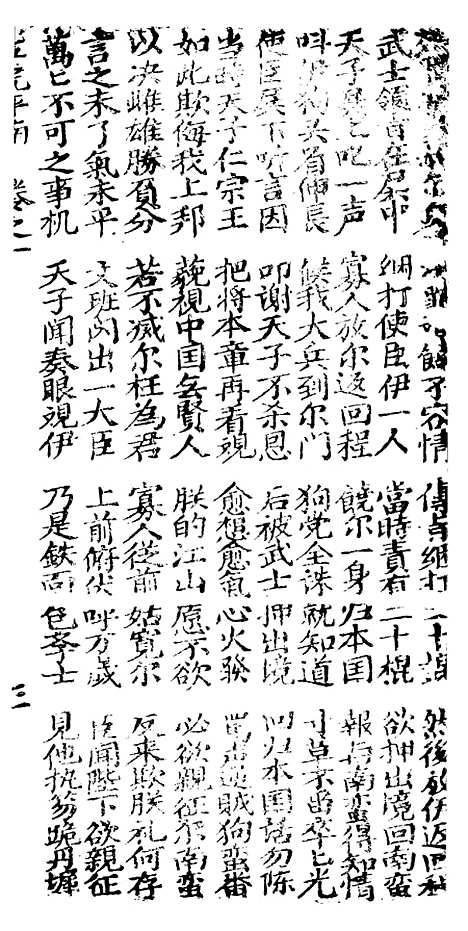 饒不容情 傳旨綑打二十棍 然後放伊返回程
武士領旨在殿中 綑打使臣伊一人 當時責有二十棍 欲押出境回南蛮
天子殿上吃一声 寡人放尔返回程 饒尔一身归本囯 報与南蛮得知情
叫 狗 眉伸長 候我大兵到尔門 狗党全诛就知道 寸草不留卒匕光
使臣殿下听言因 叩谢天子不杀恩 后被武士押出境 回归本国話勿陈
当時天子仁宗王 把将本章再看观 愈想愈氣心火發 骂声逆賊狗蛮番
如此欺侮我上邦 藐視中囯無賢人 朕的江山愿不欲 必欲親征尔南蛮
以决雌雄勝負分 若不滅尔枉為君 寡人從前姑寬尔 反来欺朕礼何存
言之未了氣未平 文班闪出一大臣 上前俯伏呼万歲 臣聞陛下欲親征
萬匕不可之事机 天子聞奏眼观伊 乃是鉄面包孝士 見他执笏跪丹墀
五虎平南 卷之一 三